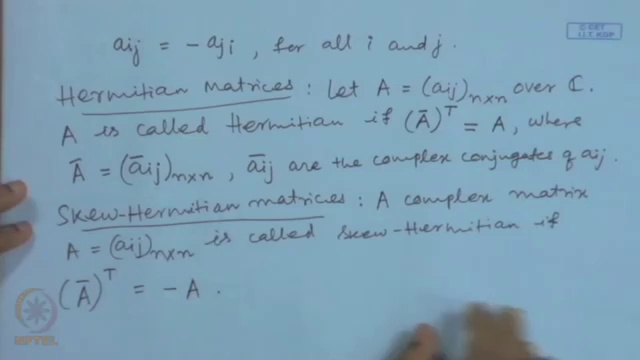 © CET
I.I.T. KGP
aij = - aji , for all i and j.
Hermitian Matrices : Let A = (aij)n×n over ℂ.
A is called Hermitian if (Ā)ᵀ = A, where
Ā = (āij)n×n , āij are the complex conjugates of aij.
Skew-Hermitian matrices : A complex matrix
A = (aij)n×n is called skew-Hermitian if
(Ā)ᵀ = - A .
NPTEL